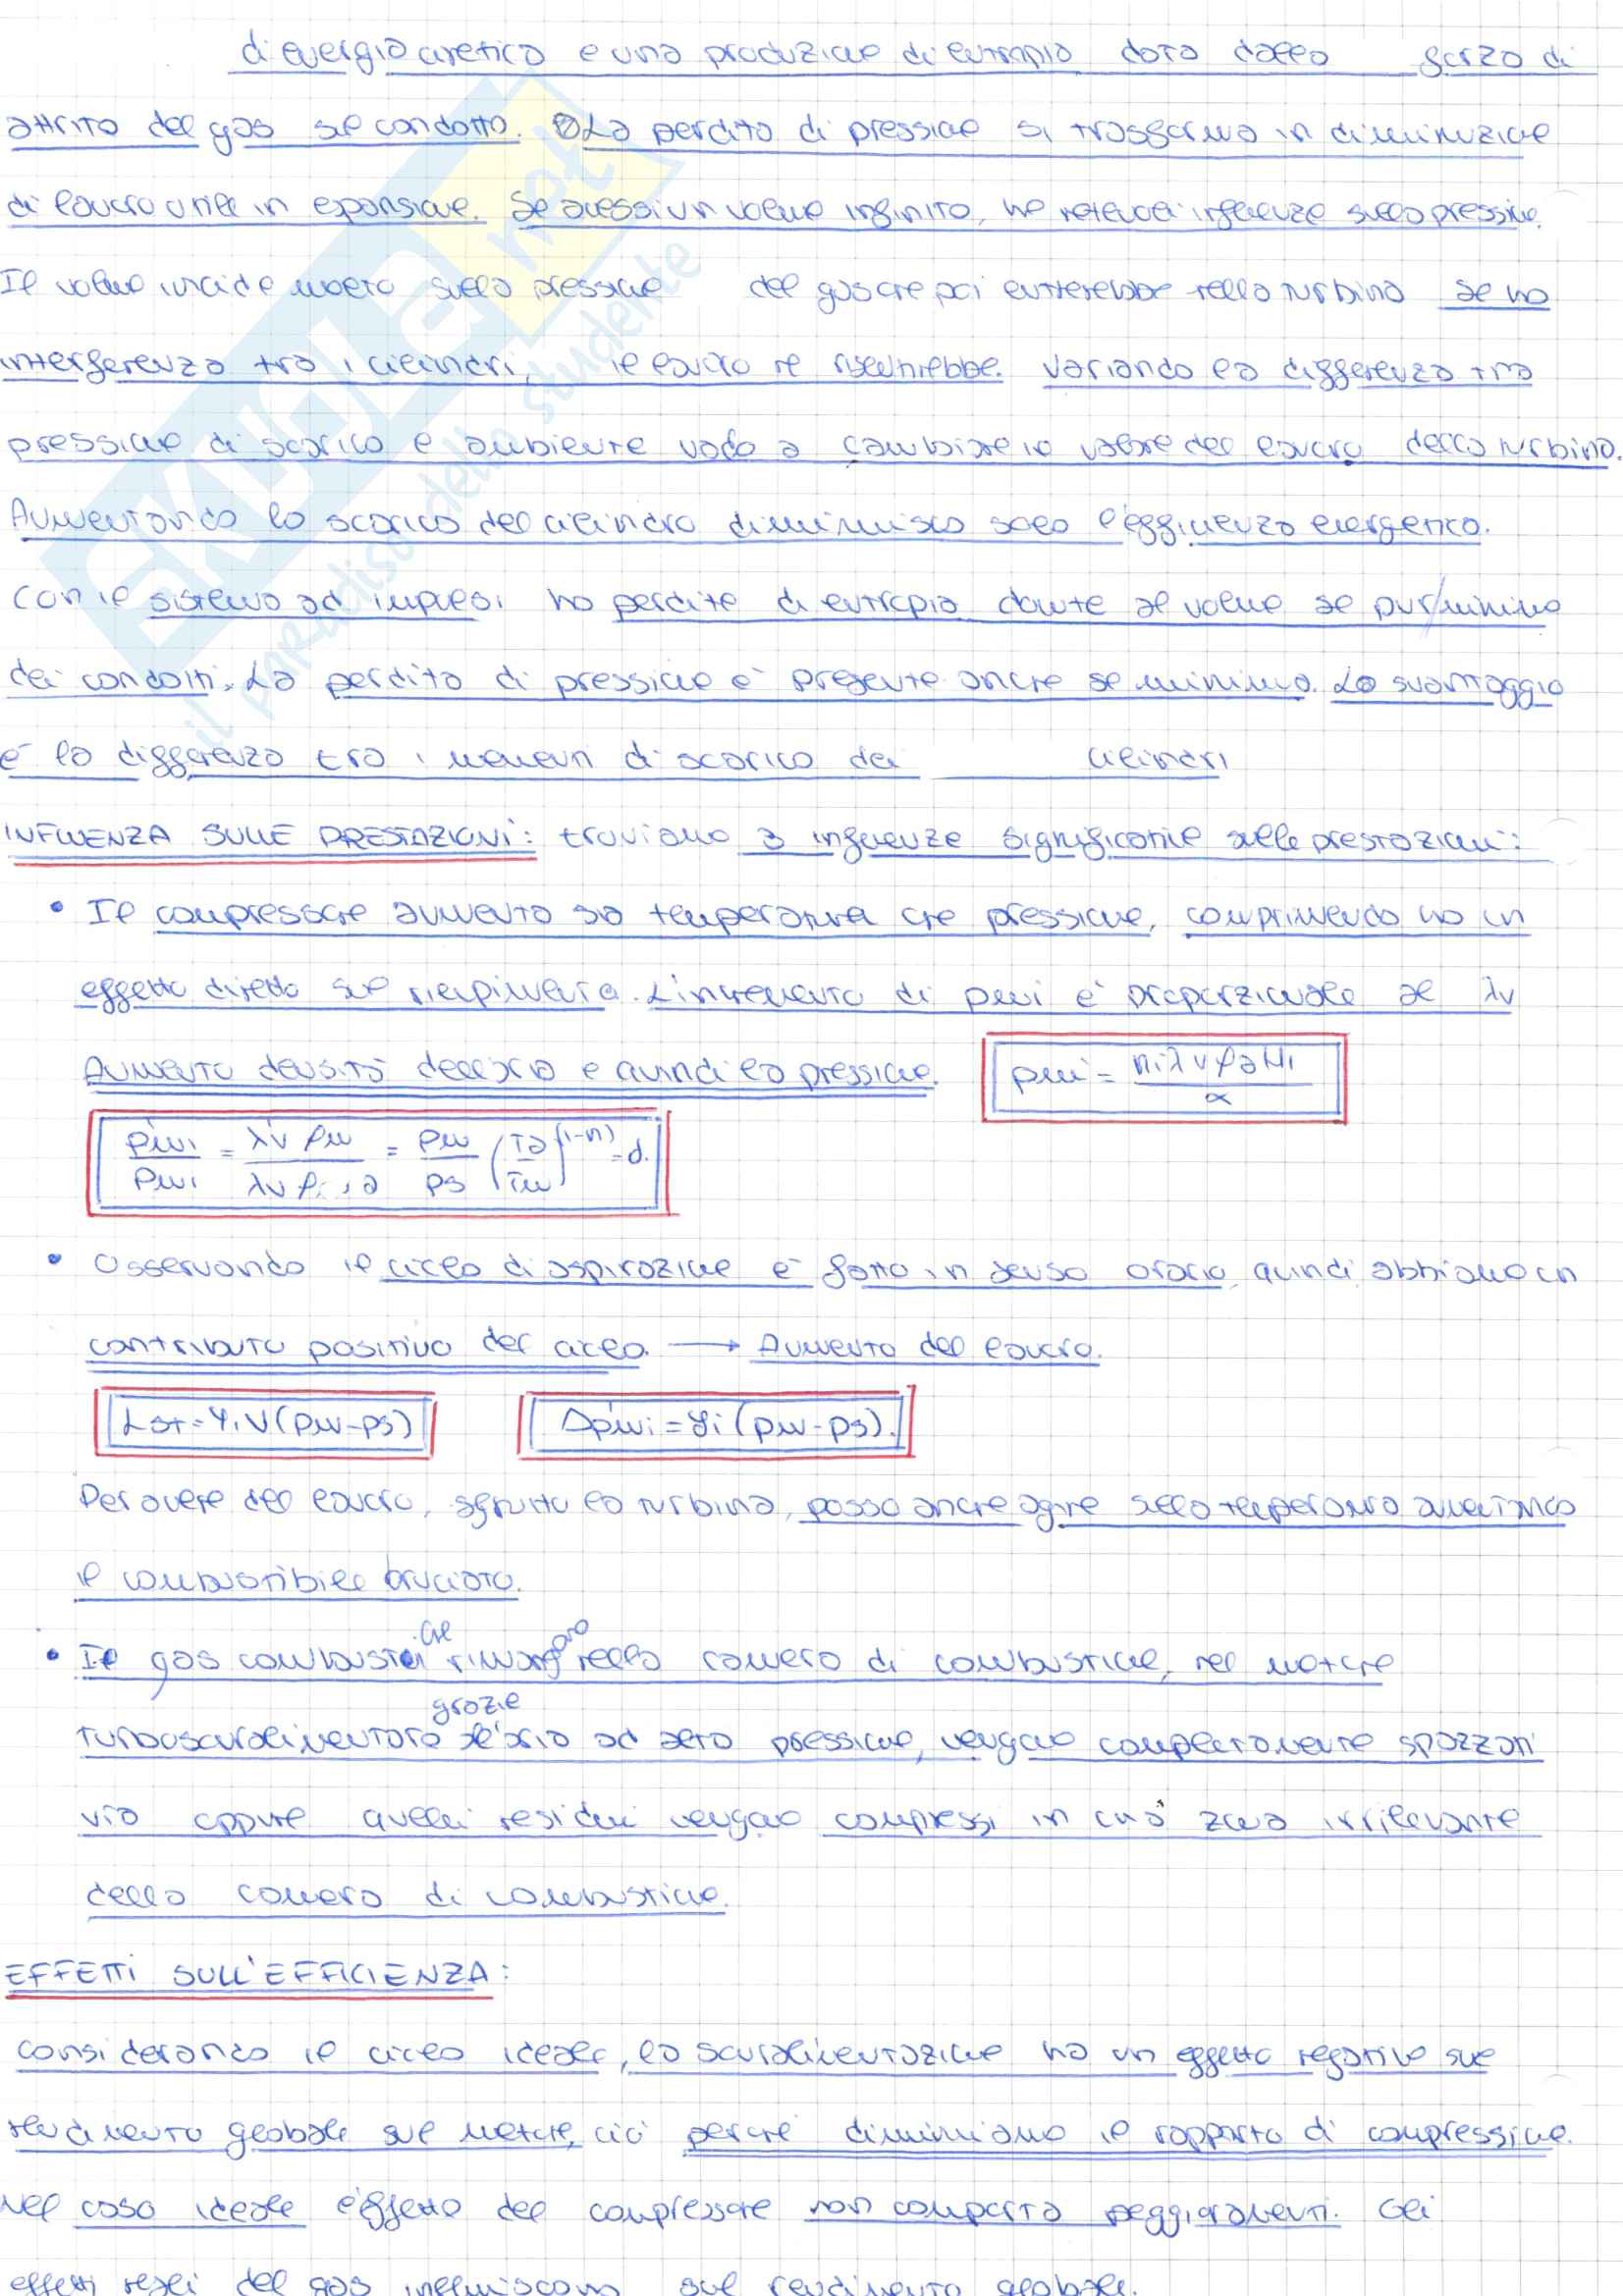 di energia cinetica e una produzione di entropia data dalla forza di
attrito del gas sul condotto. La perdita di pressione si trasforma in diminuzione
di lavoro utile in espansione. Se avessi un volume infinito, ne influenze sulla pressione.
Il volume incide molto sulla pressione del gas che poi entrerebbe nella turbina se ho
interferenza tra i cilindri, il lavoro ne risentirebbe. Variando la differenza tra
pressione di scarico e ambiente vado a cambiare il valore del lavoro della turbina.
Aumentando lo scarico del cilindro diminuisco solo l'efficienza energetica.
Con il sistema ad impulsi ho perdite di entropia dovute al volume se pur minimo
dei condotti. La perdita di pressione è presente anche se minima. Lo svantaggio
è la differenza tra i momenti di scarico dei cilindri
INFLUENZA SULLE PRESTAZIONI: troviamo 3 influenze significative sulle prestazioni:
• Il compressore aumenta sia temperatura che pressione, comprimendo ho un
effetto diretto sul riempimento. L'incremento di pmi è proporzionale al λv
Aumento densità dell'aria e quindi la pressione. pmi = ηi λv ρa Hi / α
pmi' / pmi = λv' ρm / λv ρi,a = pm / ps (Ta / Tm)^(1-n) = d.
• Osservando il ciclo di aspirazione è fatto in senso orario, quindi abbiamo un
contributo positivo del ciclo → Aumento del lavoro.
Lst = yi V (pm - ps) Δpmi = yi (pm - ps).
Per avere del lavoro, sfrutto la turbina, posso anche agire sulla temperatura aumentando
il combustibile bruciato.
• Il gas combusto che rimangono nella camera di combustione, nel motore
turbosovralimentato grazie all'aria ad alta pressione, vengono completamente spazzati
via oppure quelli residui vengono compressi in una zona irrilevante
della camera di combustione.
EFFETTI SULL'EFFICIENZA:
Considerando il ciclo ideale, la sovralimentazione ha un effetto negativo sul
rendimento globale sul motore, ciò perché diminuiamo il rapporto di compressione.
Nel caso ideale l'effetto del compressore non comporta peggioramenti. Gli
effetti reali del gas influiscono sul rendimento globale.
SKUOLA.net
il paradiso dello studente